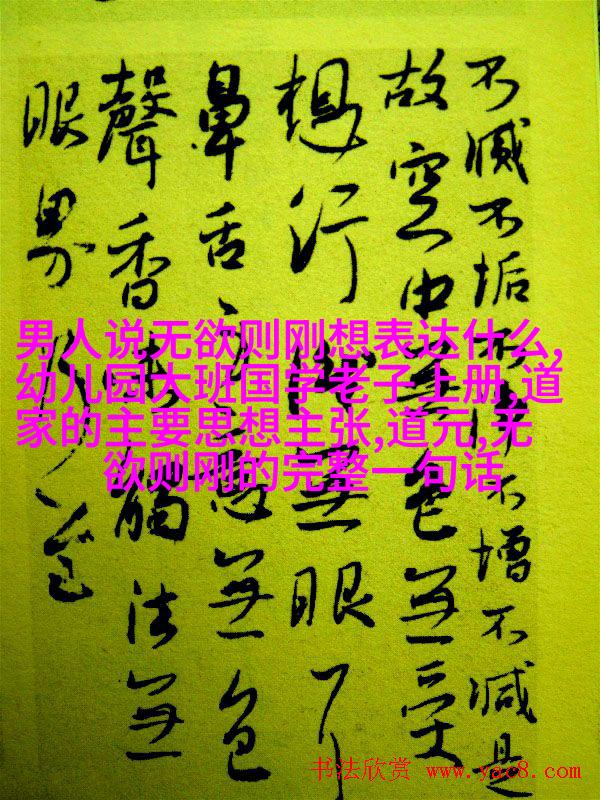 不滅不垢不淨不增不減是
故空中無色無受
想行識無眼耳
鼻舌身意無色
聲香味觸法無
眼界
男人说无欲则刚想表达什么,
幼儿园大班国学老子上册,道
家的主要思想主张,道元,无
欲则刚的完整一句话
书法欣赏 www.yac8.com